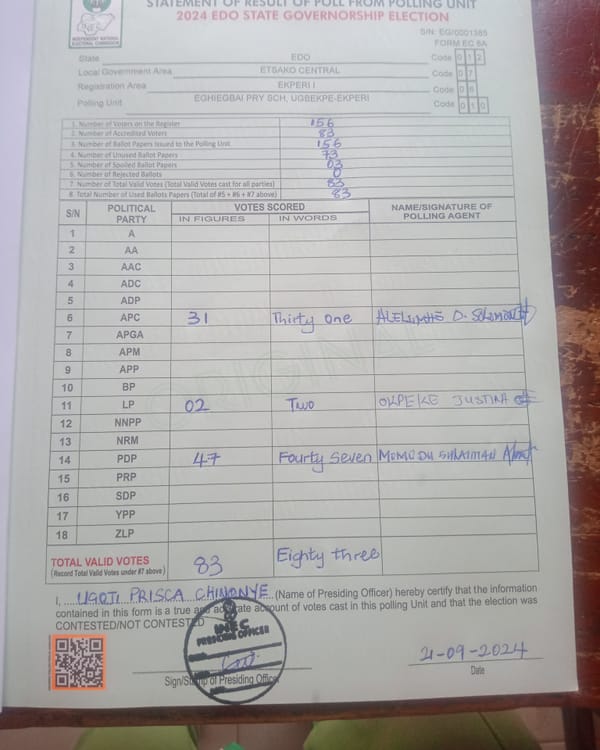 STATEMENT OF RESULT OF POLL FROM POLLING UNIT
2024 EDO STATE GOVERNORSHIP ELECTION
INEC
INDEPENDENT NATIONAL
ELECTORAL COMMISSION
S/N: EG/0001385
FORM EC 8A
State EDO Code 0 1 2
Local Government Area ETSAKO CENTRAL Code 0 7
Registration Area EKPERI I Code 0 6
Polling Unit EGHIEGBAI PRY SCH, UGBEKPE-EKPERI Code 0 1 0
1. Number of Voters on the Register 156
2. Number of Accredited Voters 83
3. Number of Ballot Papers Issued to the Polling Unit 156
4. Number of Unused Ballot Papers 73
5. Number of Spoiled Ballot Papers 03
6. Number of Rejected Ballots 0
7. Number of Total Valid Votes (Total Valid Votes cast for all parties) 83
8. Total Number of Used Ballots Papers (Total of #5 + #6 + #7 above) 83
S/N POLITICAL PARTY VOTES SCORED NAME/SIGNATURE OF POLLING AGENT
IN FIGURES IN WORDS
1 A
2 AA
3 AAC
4 ADC
5 ADP
6 APC 31 Thirty one D.
7 APGA
8 APM
9 APP
10 BP
11 LP 02 Two OKPEKE JUSTINA
12 NNPP
13 NRM
14 PDP 47 Fourty Seven MOMODU SULAIMAN
15 PRP
16 SDP
17 YPP
18 ZLP
TOTAL VALID VOTES 83 Eighty three
(Record Total Valid Votes under #7 above)
I, UGOTI PRISCA CHINONYE (Name of Presiding Officer) hereby certify that the information
contained in this form is a true and accurate account of votes cast in this polling Unit and that the election was
CONTESTED/NOT CONTESTED
INEC
PRESIDING OFFICER
21-09-2024
Sign/Stamp of Presiding Officer Date